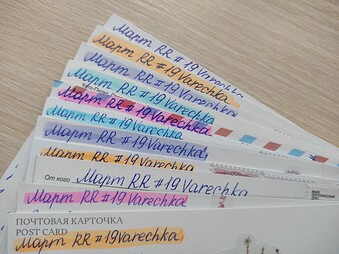 Март RR #19 Varechka
Март RR #19 Varechka
Март RR #19 Varechka
Март RR #19 Varechka
Март RR #19 Varechka
Март RR #19 Varechka
Март RR #19 Varechka
Март RR #19 Varechka
От кого Март RR #19 Varechka
Март RR #19 Varechka
ПОЧТОВАЯ КАРТОЧКА
POST CARD
Март RR #19 Varechka